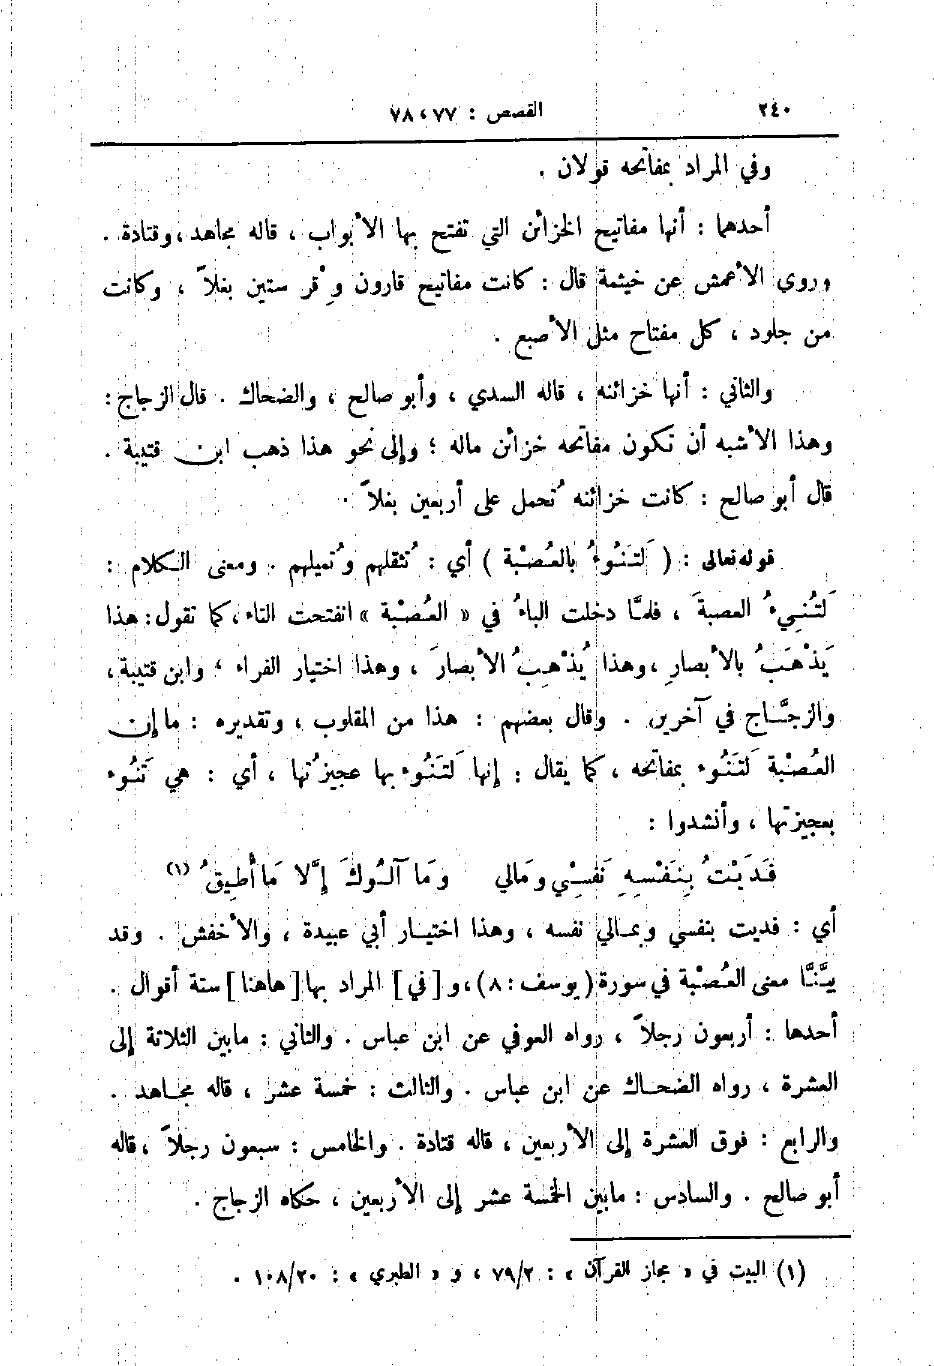 ٢٤٠
القصص : ٧٧ ، ٧٨
وفي المراد بمفاتحه قولان .
أحدهما : أنها مفاتيح الخزائن التي تفتح بها الأبواب ، قاله مجاهد ، وقتادة .
وروي الأعمش عن خيثمة قال : كانت مفاتيح قارون وِقْر ستين بغلاً ، وكانت
من جلود ، كل مفتاح مثل الأصبع .
والثاني : أنها خزائنه ، قاله السدي ، وأبو صالح ، والضحاك . قال الزجاج :
وهذا الأشبه أن تكون مفاتحه خزائن ماله ؛ وإلى نحو هذا ذهب ابن قتيبة .
قال أبو صالح : كانت خزائنه تُحمل على أربعين بغلاً .
قوله تعالى : ( لَتَنُوءُ بالعُصْبة ) أي : تُثقلهم وتُميلهم . ومعنى الكلام :
لَتُنِيءُ العصبةَ ، فلمَّا دخلت الباءُ في « العُصْبة » انفتحت التاء ، كما تقول : هذا
يَذْهَبُ بالأبصارِ ، وهذا يُذْهِبُ الأبصارَ ، وهذا اختيار الفراء ؛ وابن قتيبة ،
والزجَّاج في آخرين . وقال بعضهم : هذا من المقلوب ، وتقديره : ما إن
العُصْبة لَتَنُوء بمفاتحه ، كما يقال : إنها لَتَنُوء بها عجيزتُها ، أي : هي تَنُوء
بعجيزتها ، وأنشدوا :
فَدَيْتُ بِنَفْسِهِ نَفْسِي ومَالي وَمَا آلُوكَ إِلَّا مَا أُطِيقُ (١)
أي : فديت بنفسي وبمالي نفسه ، وهذا اختيار أبي عبيدة ، والأخفش . وقد
بيَّنَّا معنى العُصْبة في سورة ( يوسف : ٨ ) ، و [ في ] المراد بها [ هاهنا ] ستة أقوال .
أحدها : أربعون رجلاً ، رواه العوفي عن ابن عباس . والثاني : مابين الثلاثة إلى
العشرة ، رواه الضحاك عن ابن عباس . والثالث : خمسة عشر ، قاله مجاهد .
والرابع : فوق العشرة إلى الأربعين ، قاله قتادة . والخامس : سبعون رجلاً ، قاله
أبو صالح . والسادس : مابين الخمسة عشر إلى الأربعين ، حكاه الزجاج .
(١) البيت في « مجاز القرآن » : ٧٩/٢ ، و « الطبري » : ١٠٨/٢٠ .